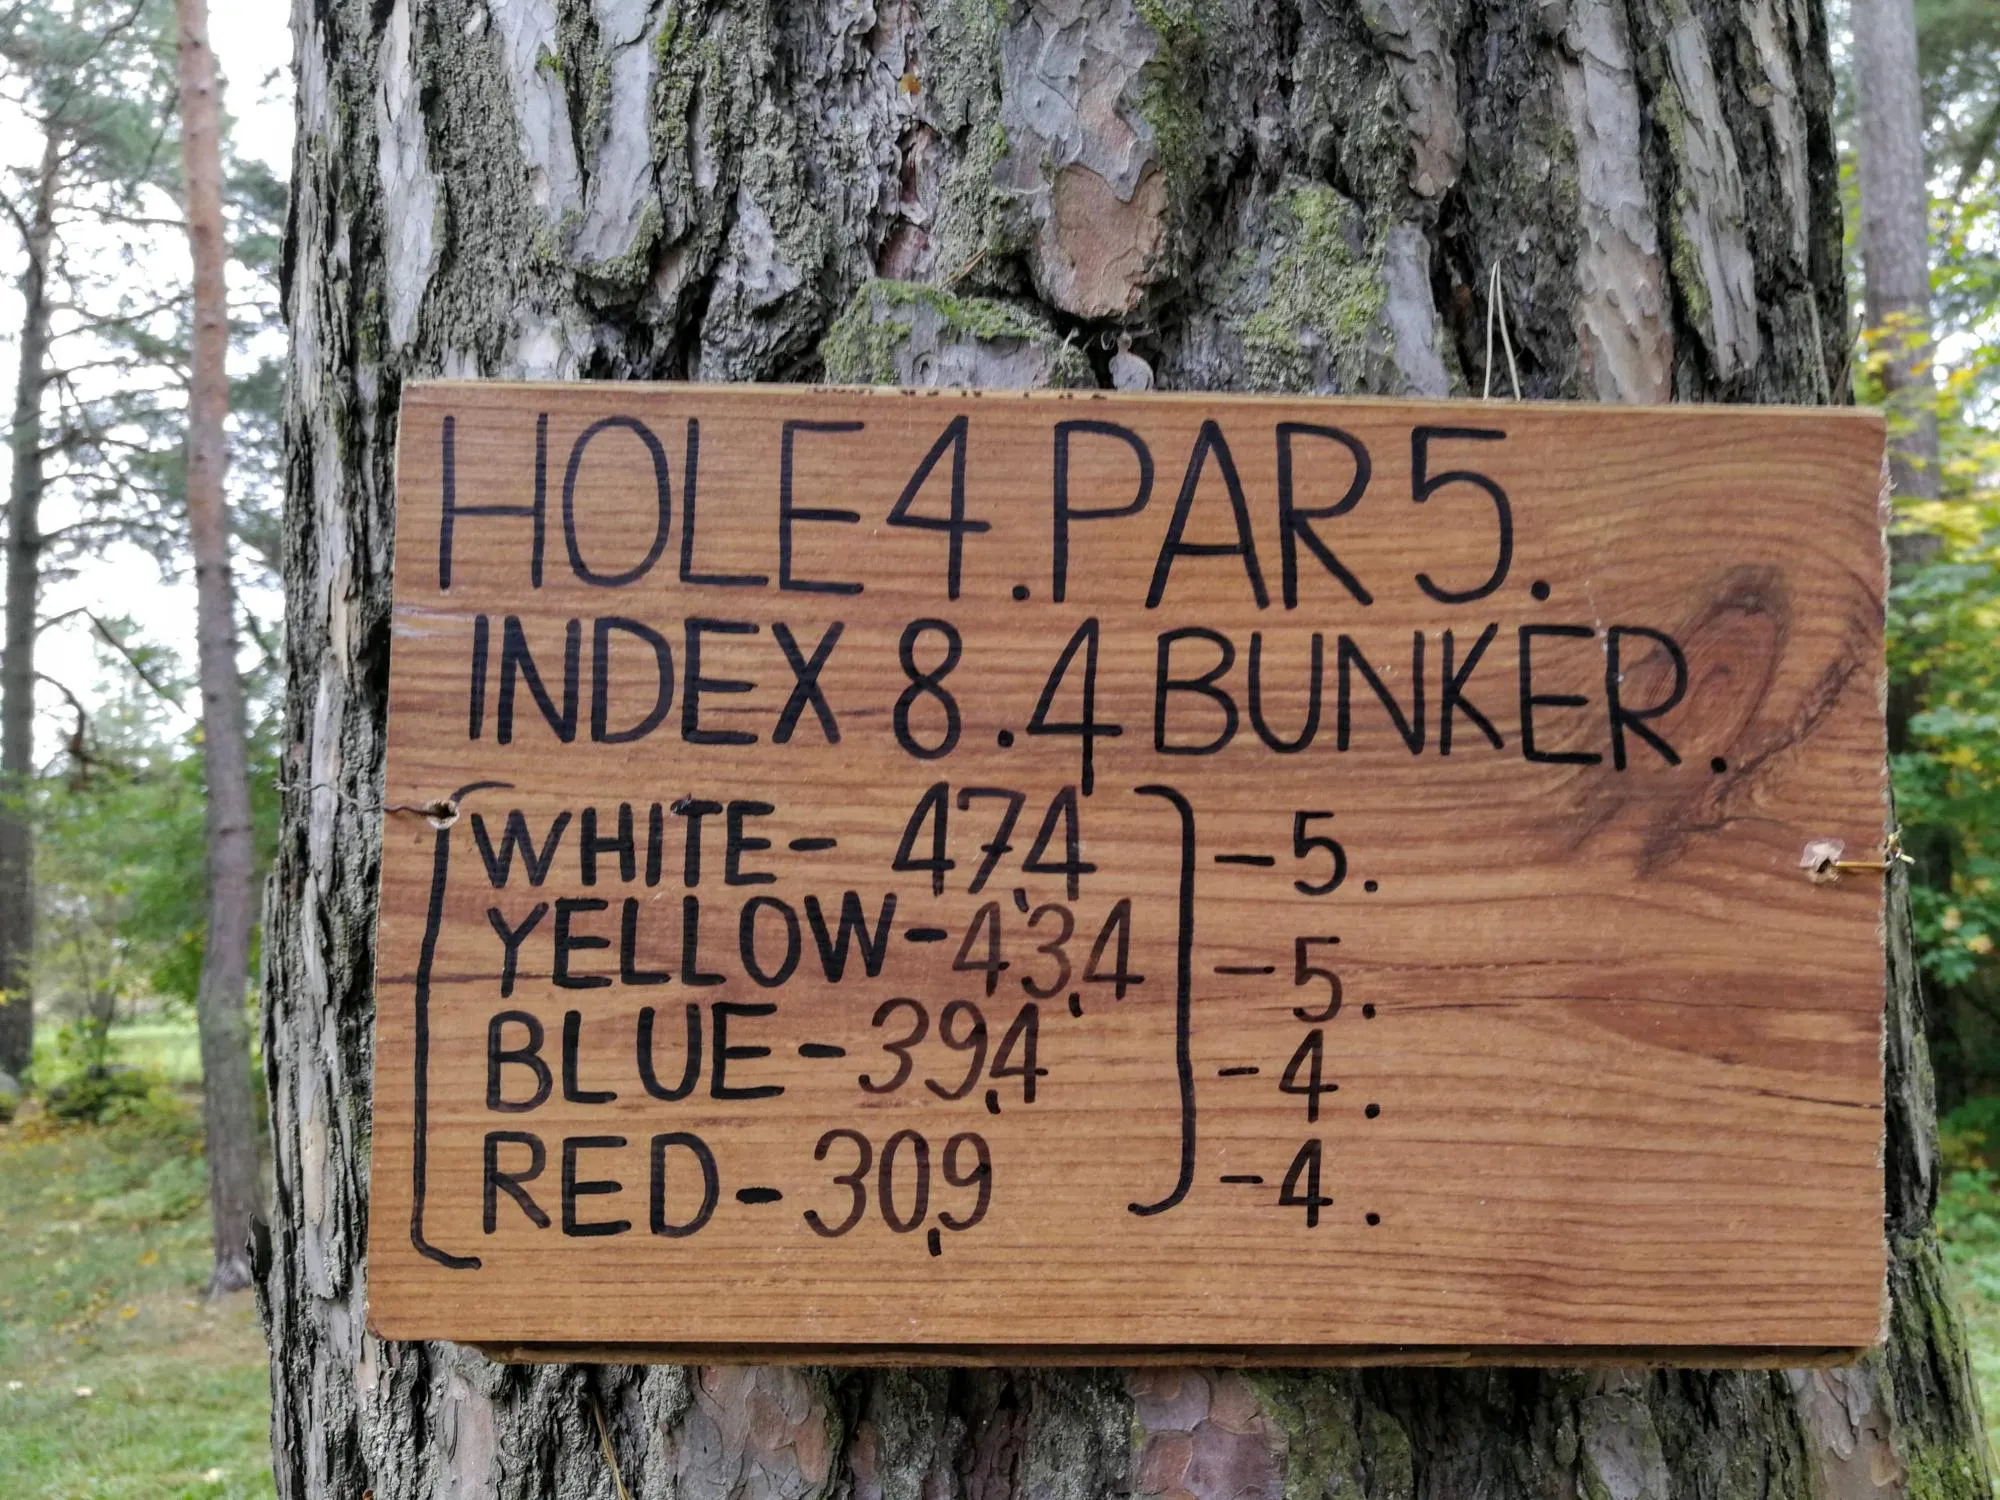 HOLE 4. PAR 5.
INDEX 8. 4 BUNKER.
WHITE- 47,4 -5.
YELLOW-43,4 -5.
BLUE-39,4 -4.
RED-30,9 -4.